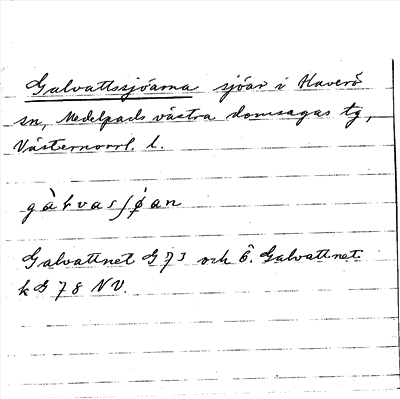 Galvattssjöarna sjöar i Haverö
sn, Medelpads västra domsagas tg,
Västernorrl. l.
gàɫvasʃø̀an
Galvattnet G 73 och Ö. Galvattnet
kG 78 NV.